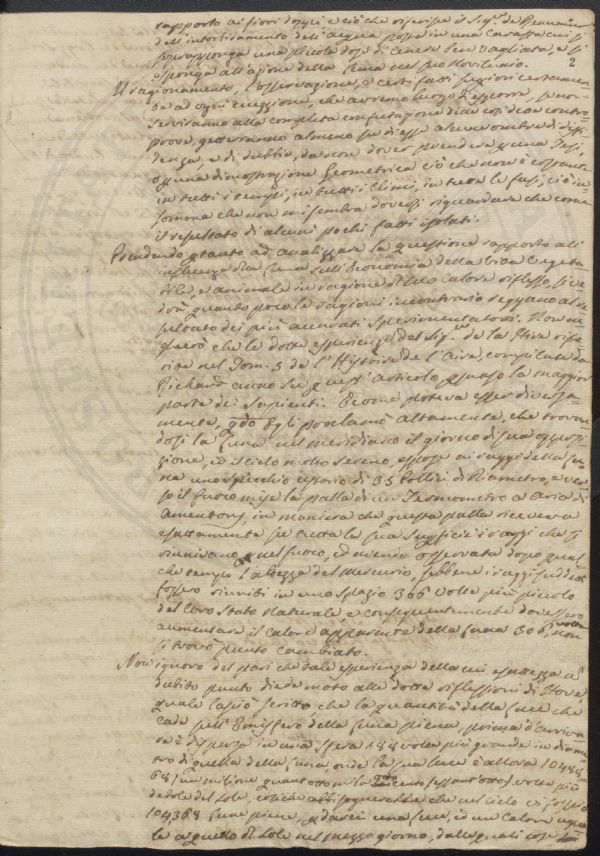 rapporto ai fiori doppi e ciò che riferisce il Sig.r de
dell'intorbidamento dell'acqua posta in una caraffa cui si
sopraponga una piccola dose di cenere ben vagliata, e si
2
esponga all'azione della Luna nel suo Novilunio.
Il ragionamento, l'osservazione, e certi fatti
ad ogni eccezione, che avremo luogo di esporre, se non
serviranno alla completa confutazione di così dette contro
prove, getteranno almeno su di esse alcune ombre di diffi
denza, e di dubbio, da non dover prendere
una dimostrazione Geometrica ciò che non è costante
in tutti i tempi, in tutti i climi, in tutte le fasi, ciò in
somma che non mi sembra doversi riguardare che come
il resultato di alcuni pochi fatti isolati.
Prendendo pertanto ad analizzare la questione rapporto all'
influenza della Luna sull'economia della vita vegeta
bile, e animale in ragione di luce calore riflesso, si ve
drà quanto poco le ragioni in contrario reggano al re
sultato dei più accurati sperimentatori. Non
che le dotte esperienze del Sig.r de la Hire rife
rite nel Tom. 5 de l'Histoire de l'Air, compilata da
Richard anno su quest'articolo la maggior
parte dei Sapienti. E come poteva esser diversa
mente, qdo Egli proclamò altamente, che trovan
dosi la Luna nel meridiano il giorno di sua opposi
zione, ed il cielo molto sereno, espose ai raggi della Lu
na uno specchio ustorio di 35 Pollici di Diametro, e ver
so il fuoco mise la palla di un Termometro a aria di
Amentons, in maniera che questa palla riceveva
esattamente per tutta la sua superficie i raggi che si
riunivano nel fuoco, ed avendo osservata dopo qual
che tempo l'altezza del Mercurio, sebbene i raggi
fossero riuniti in uno spazio 306 volte più piccolo
del loro stato naturale, e conseguentemente dovessero
aumentare il calore apparente della Luna 306 volte, non
si trovò punto cambiato.
Non ignoro del pari che tale esperienza della cui esattezza
dubito punto diede moto alle dotte riflessioni di
quale lasciò scritto, che la quantità della Luce che
cade sull'Emisfero della Luna piena, prima d'arriva
re è dispersa in una sfera 188 volte più grande in diame
tro di quella della Luna, onde la sua luce è allora 10488
68 (un milione quarantotto mila cento sessant'otto) volte più
debole del sole, cosichè abbisognerebbe che nel cielo vi fossero
104368 Lune piene, per darci una Luce, ed un calore equa
le a quello di sole nel mezzo giorno, dalle quali cose